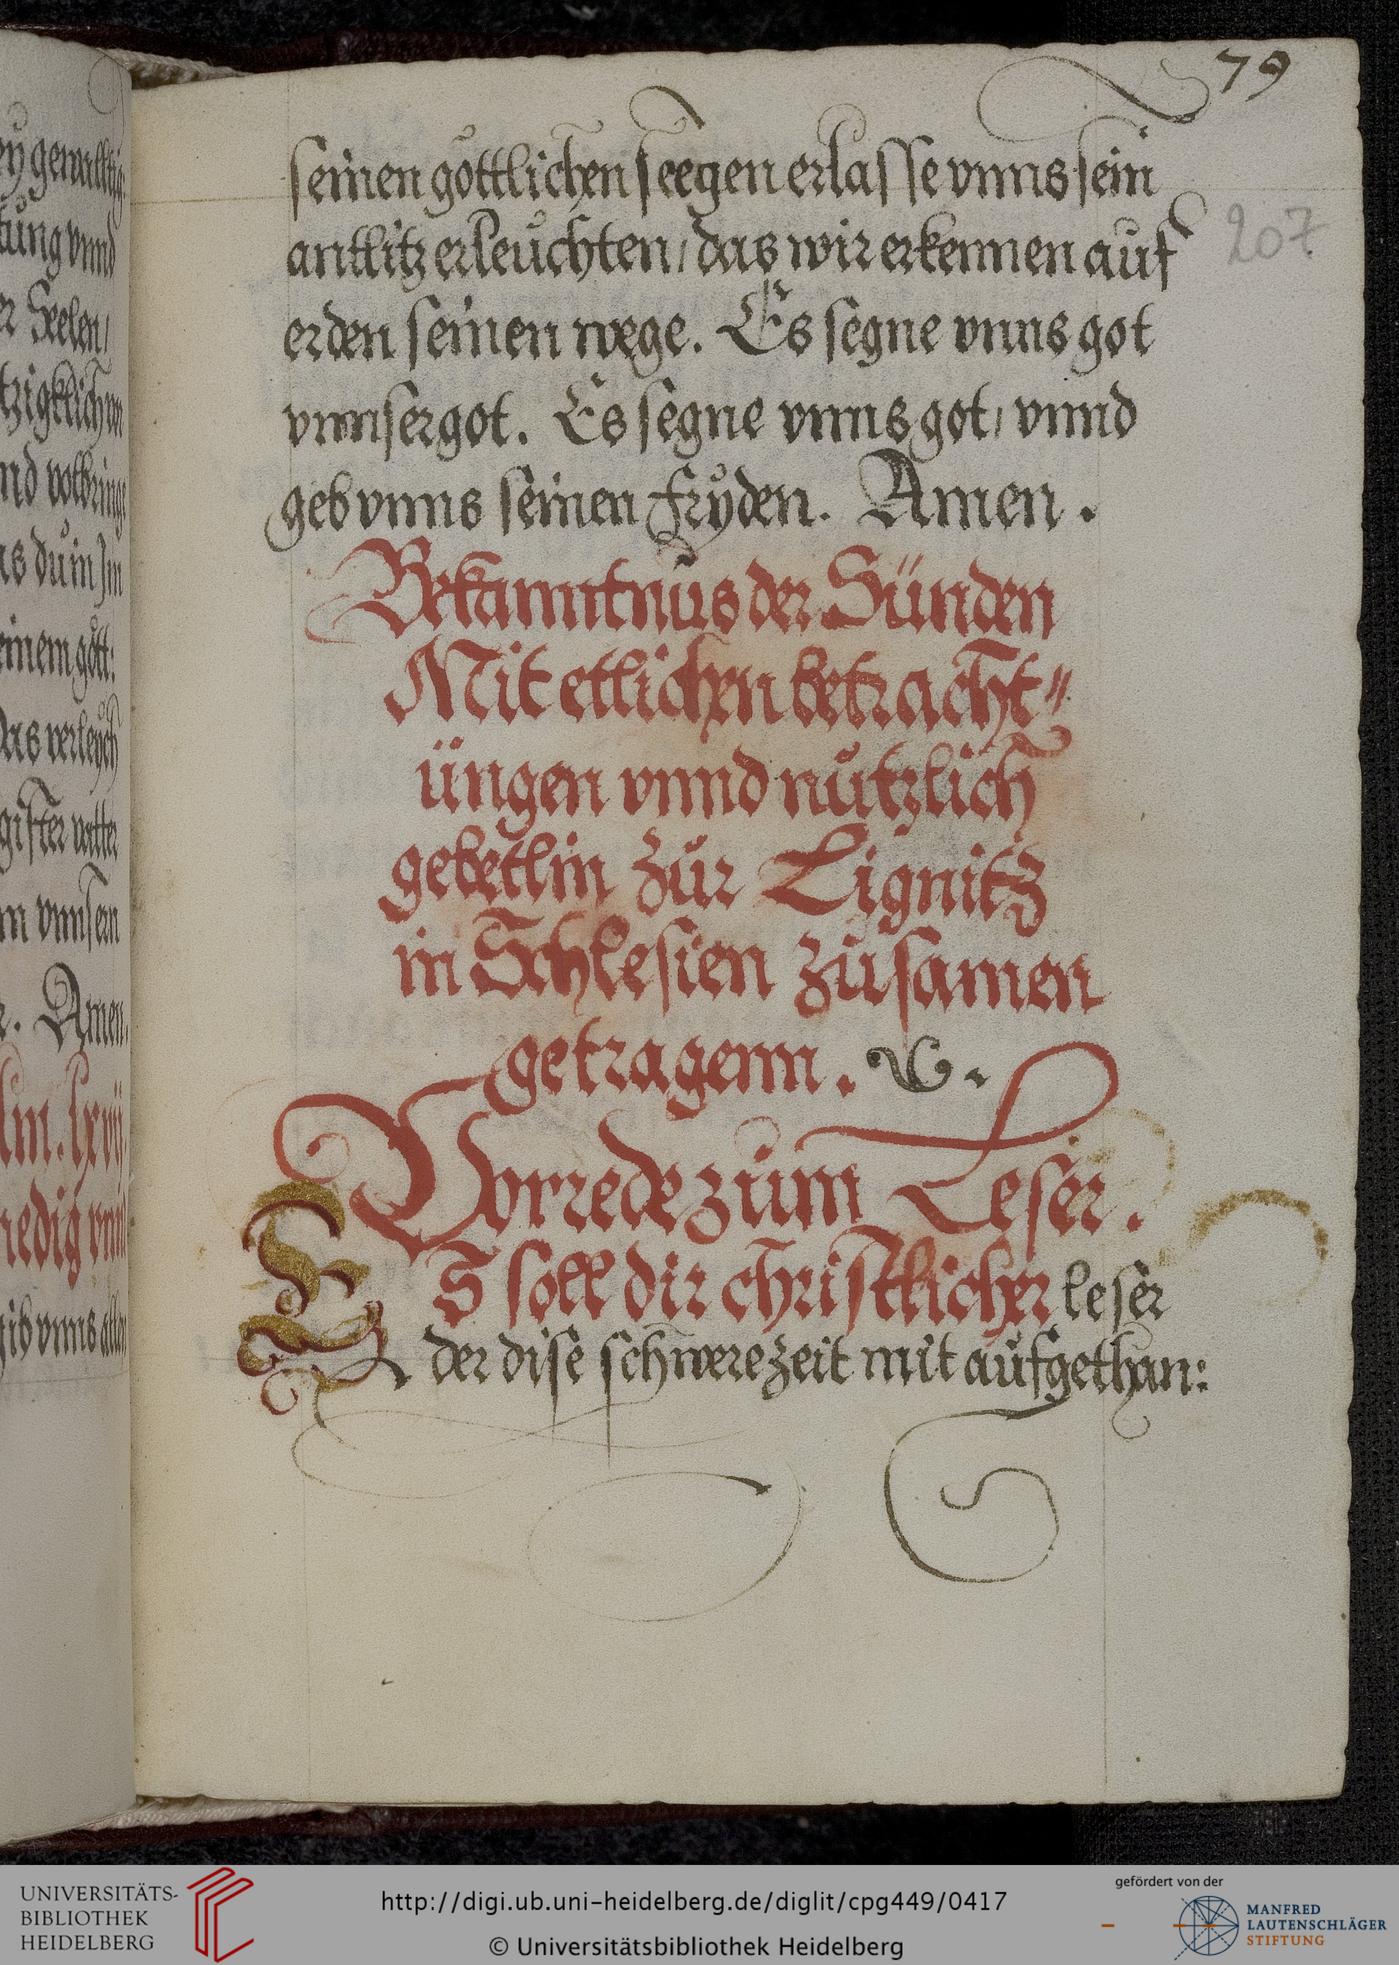 79
207
seinen göttlichen seegen er lasse vnns sein
antlitz erleuchten / das wir erkennen auf
erden seinen wege. Es segne vnns got
vnnser got. Es segne vnns got / vnnd
geb vnns seinen fryden. Amen.
Bekanntnus der Sünden
Mit etlichen betracht"
üngen vnnd nützlich
gebetlin zur Lignitz
in Schlesien zusamen
getragenn.
Vorrede zum Leser.
ES soll dir christlicher leser
der dise schwere zeit mit aufgethan:
er Seelen /
as du in Jm
das verleych
vnnsern
Amen.
lm. lxvij.
nedig vnns
gib vnns allen
UNIVERSITÄTS-
BIBLIOTHEK
HEIDELBERG
http://digi.ub.uni-heidelberg.de/diglit/cpg449/0417
© Universitätsbibliothek Heidelberg
gefördert von der
MANFRED
LAUTENSCHLÄGER
STIFTUNG